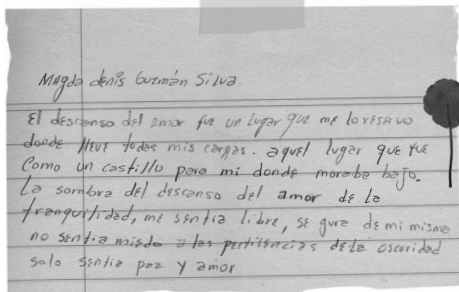 Magda denis Guzmán Silva
El descanso del amor fue un lugar que me lo reservo
donde lleve todas mis cargas. aquel lugar que fue
Como un castillo para mi donde moraba bajo.
La sombra del descanso del amor de la
tranquilidad, me sentia libre, segura de mi misma
no sentia miedo a las pertitencias de la oscuridad
solo sentia paz y amor